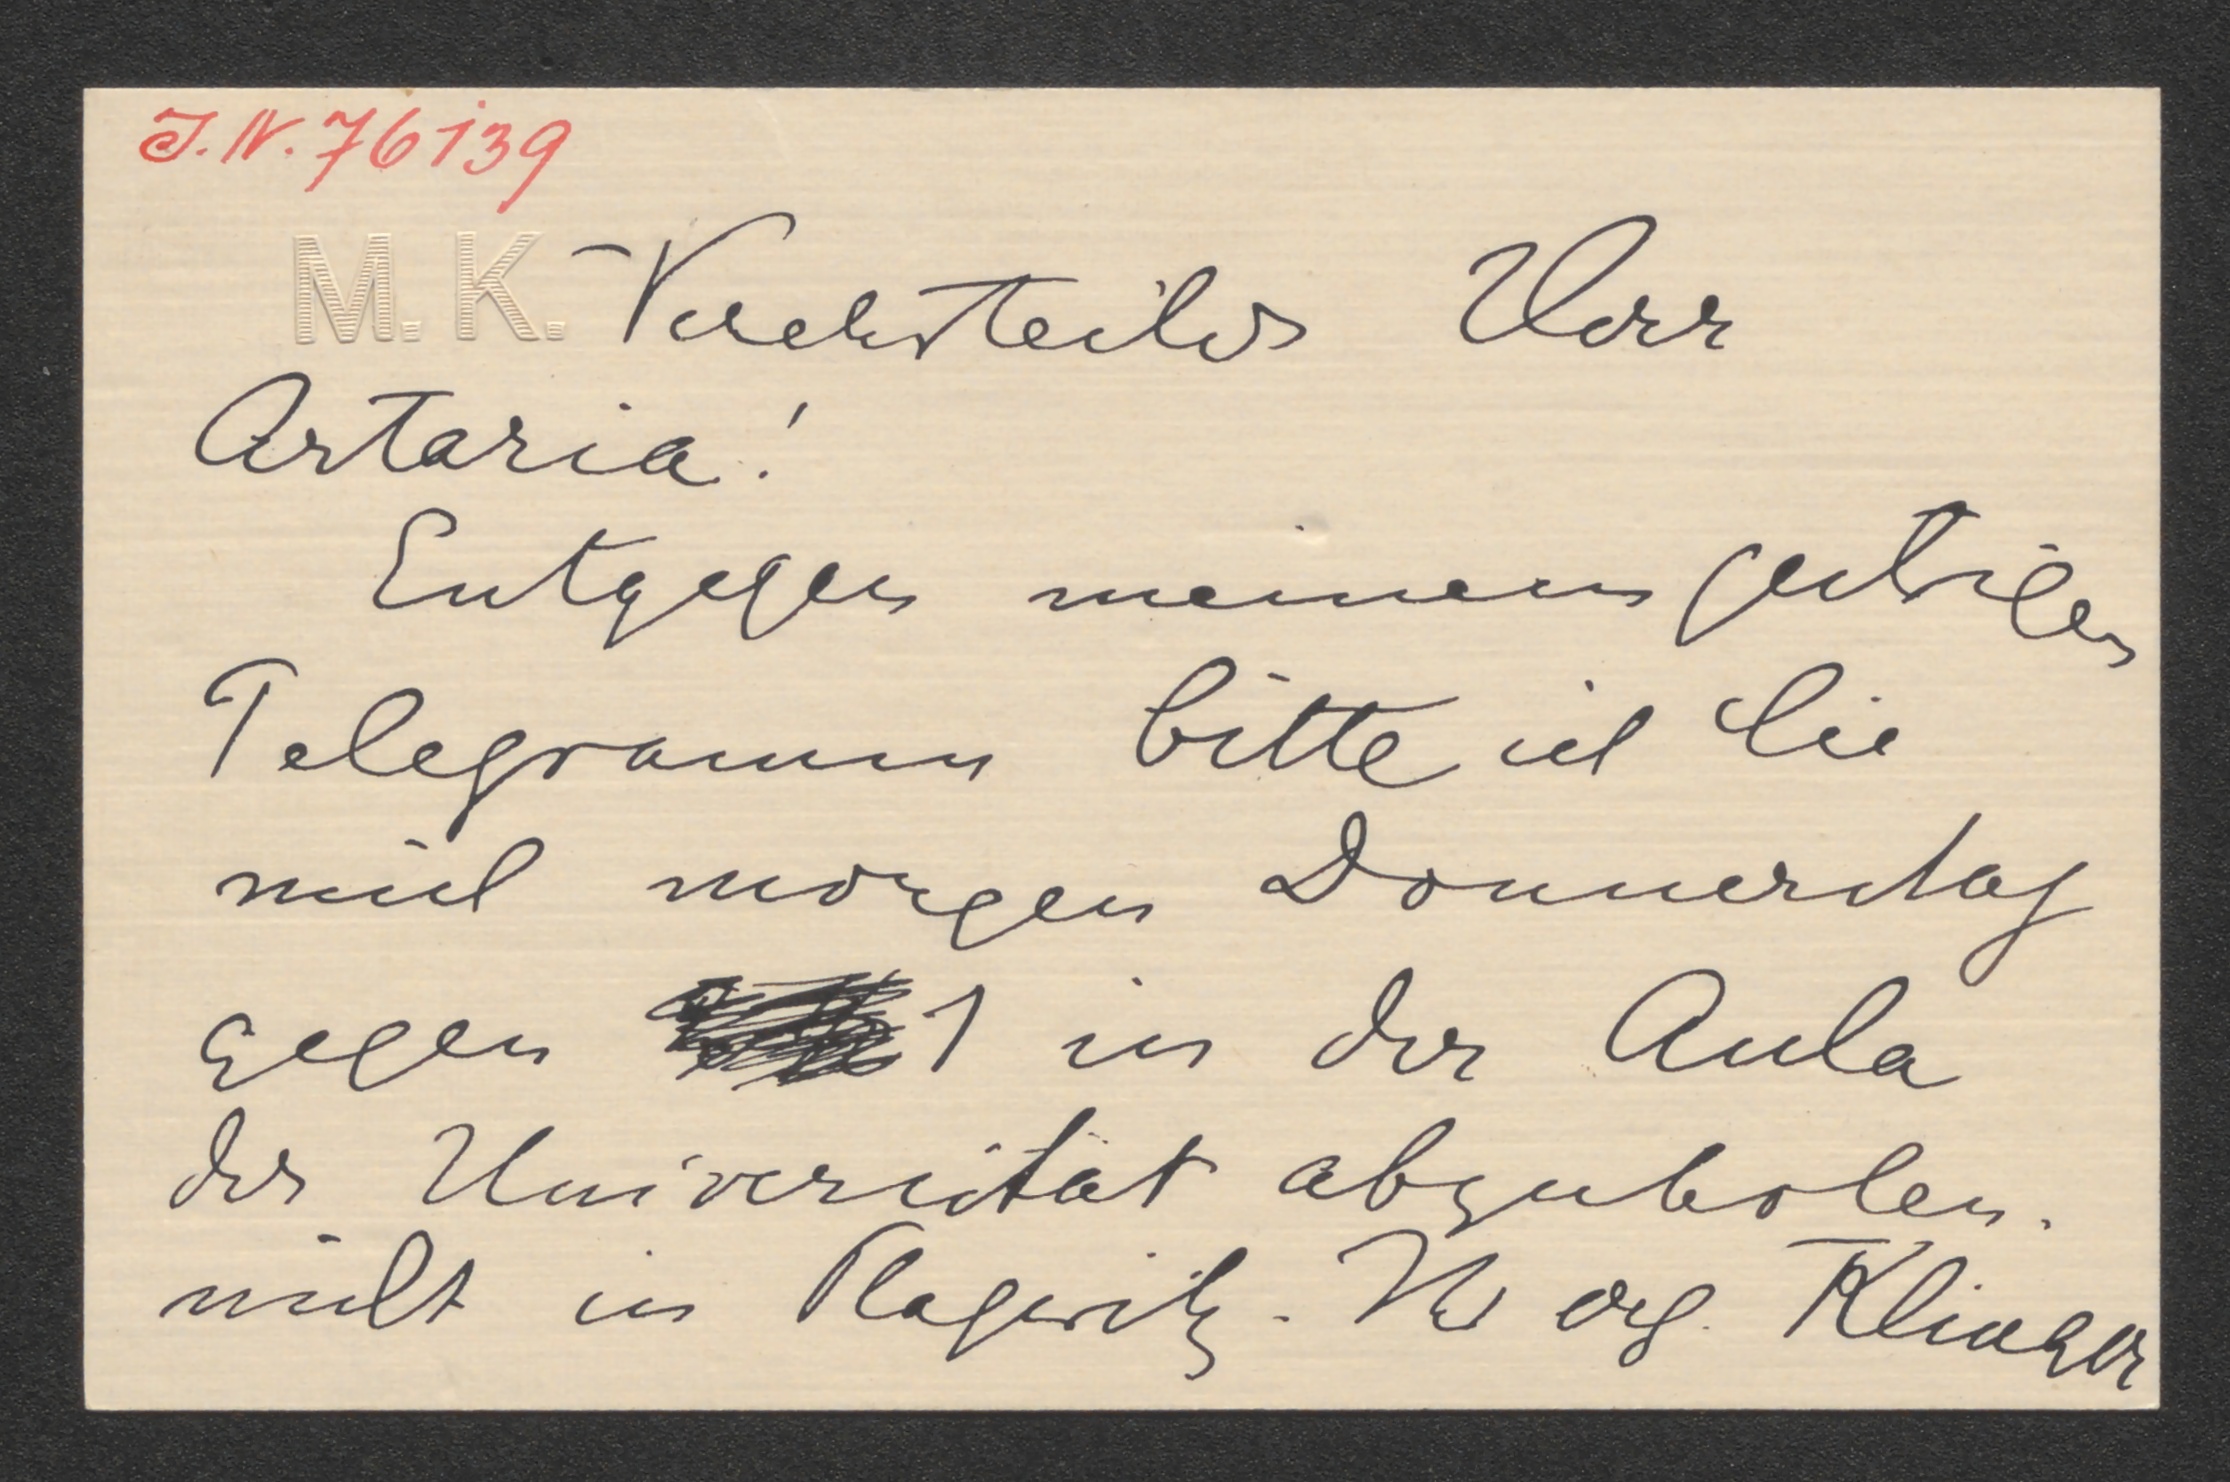 J.N. 76139
M. K. Verehrtester Herr
Artaria!
Entgegen meinem gestrigen
Telegramm bitte ich Sie
mich morgen Donnerstag
gegen 1 in der Aula
der Universität abzuholen.
nicht in Plagwitz. Ihr erg. Klinger